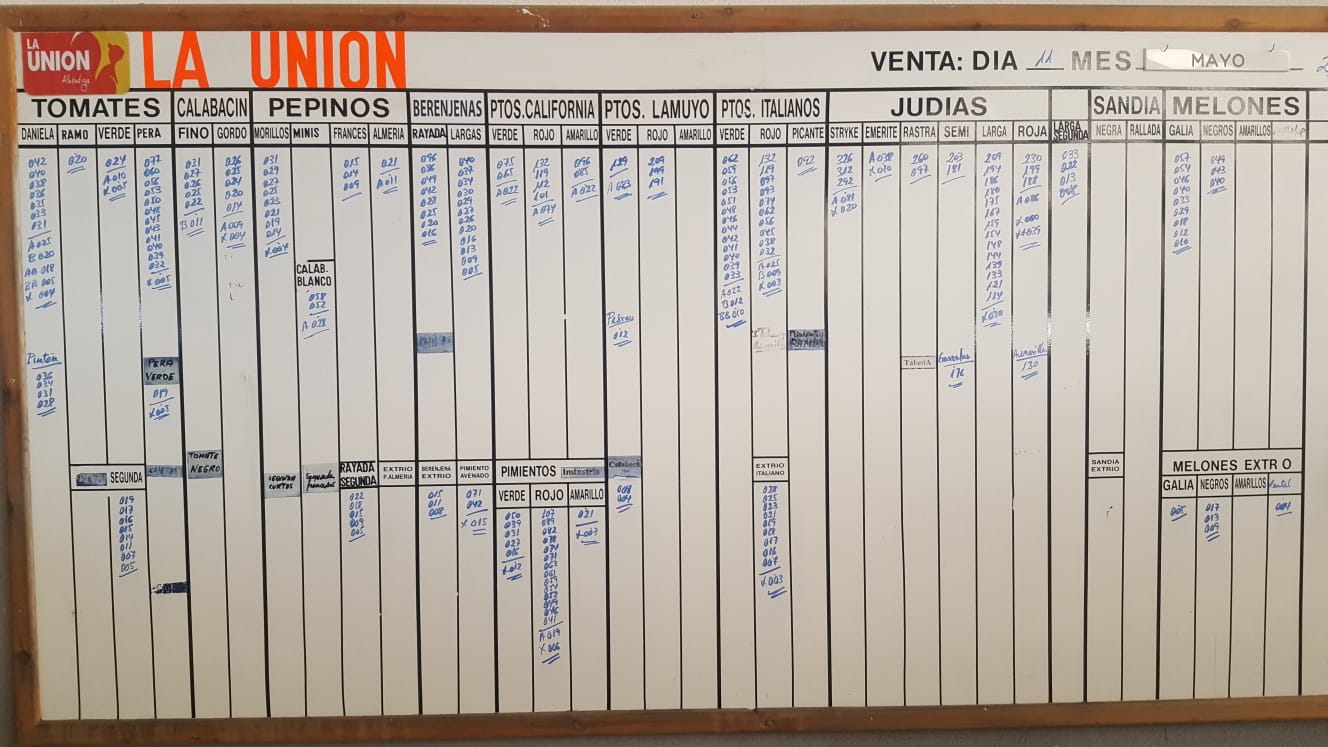 LA
UNION
Alhóndiga
LA UNION
VENTA: DIA 11 MES MAYO
TOMATES CALABACIN PEPINOS BERENJENAS PTOS.CALIFORNIA PTOS. LAMUYO PTOS. ITALIANOS JUDIAS LARGA SEGUNDA SANDIA MELONES
DANIELA RAMO VERDE PERA FINO GORDO MORILLOS MINIS FRANCES ALMERIA RAYADA LARGAS VERDE ROJO AMARILLO VERDE ROJO AMARILLO VERDE ROJO PICANTE STRYKE EMERITE RASTRA SEMI LARGA ROJA NEGRA RALLADA GALIA NEGROS AMARILLOS
042
040
038
036
035
033
031
A025
B020
AA 018
BB 005
X 004
Pintón
036
034
031
028
020
024
A010
X005
077
060
056
053
050
048
045
043
041
040
039
032
X005
PERA
VERDE
019
X005
031
027
026
025
022
B011
026
025
021
020
014
A009
X004
TOMATE
NEGRO
031
029
027
025
023
021
019
014
X004
CALAB.
BLANCO
058
052
A 028
015
014
009
021
A011
096
086
049
042
028
025
020
016
040
037
034
030
029
027
026
020
016
013
009
005
075
065
A022
132
119
112
101
A074
096
085
A022
129
A093
012
209
199
191
062
059
056
053
051
048
046
044
042
041
040
039
033
A022
B012
BB010
132
129
097
093
074
062
056
045
038
032
A025
B009
X003
092
326
312
292
A081
X020
A038
X010
260
097
TabellA
203
181
176
209
194
186
180
175
167
159
154
148
144
139
133
121
114
X030
230
199
188
A086
X060
X039
130
033
022
013
008
057
054
046
040
033
029
018
012
010
049
043
040
SEGUNDA
019
017
016
015
014
011
007
005
SEGUNDA
CORTOS
RAYADA
SEGUNDA
022
018
015
009
005
EXTRIO
P.ALMERIA
BERENJENA
EXTRIO
015
011
008
PIMIENTO
AVENADO
071
042
X 015
PIMIENTOS Industria
VERDE ROJO AMARILLO
050
039
031
027
016
X012
107
089
082
078
074
071
062
061
059
054
052
049
046
041
A019
X006
021
X003
008
004
EXTRIO
ITALIANO
028
025
023
021
019
018
017
016
007
X003
SANDIA
EXTRIO
MELONES EXTR O
GALIA NEGROS AMARILLOS
005
017
013
009
004